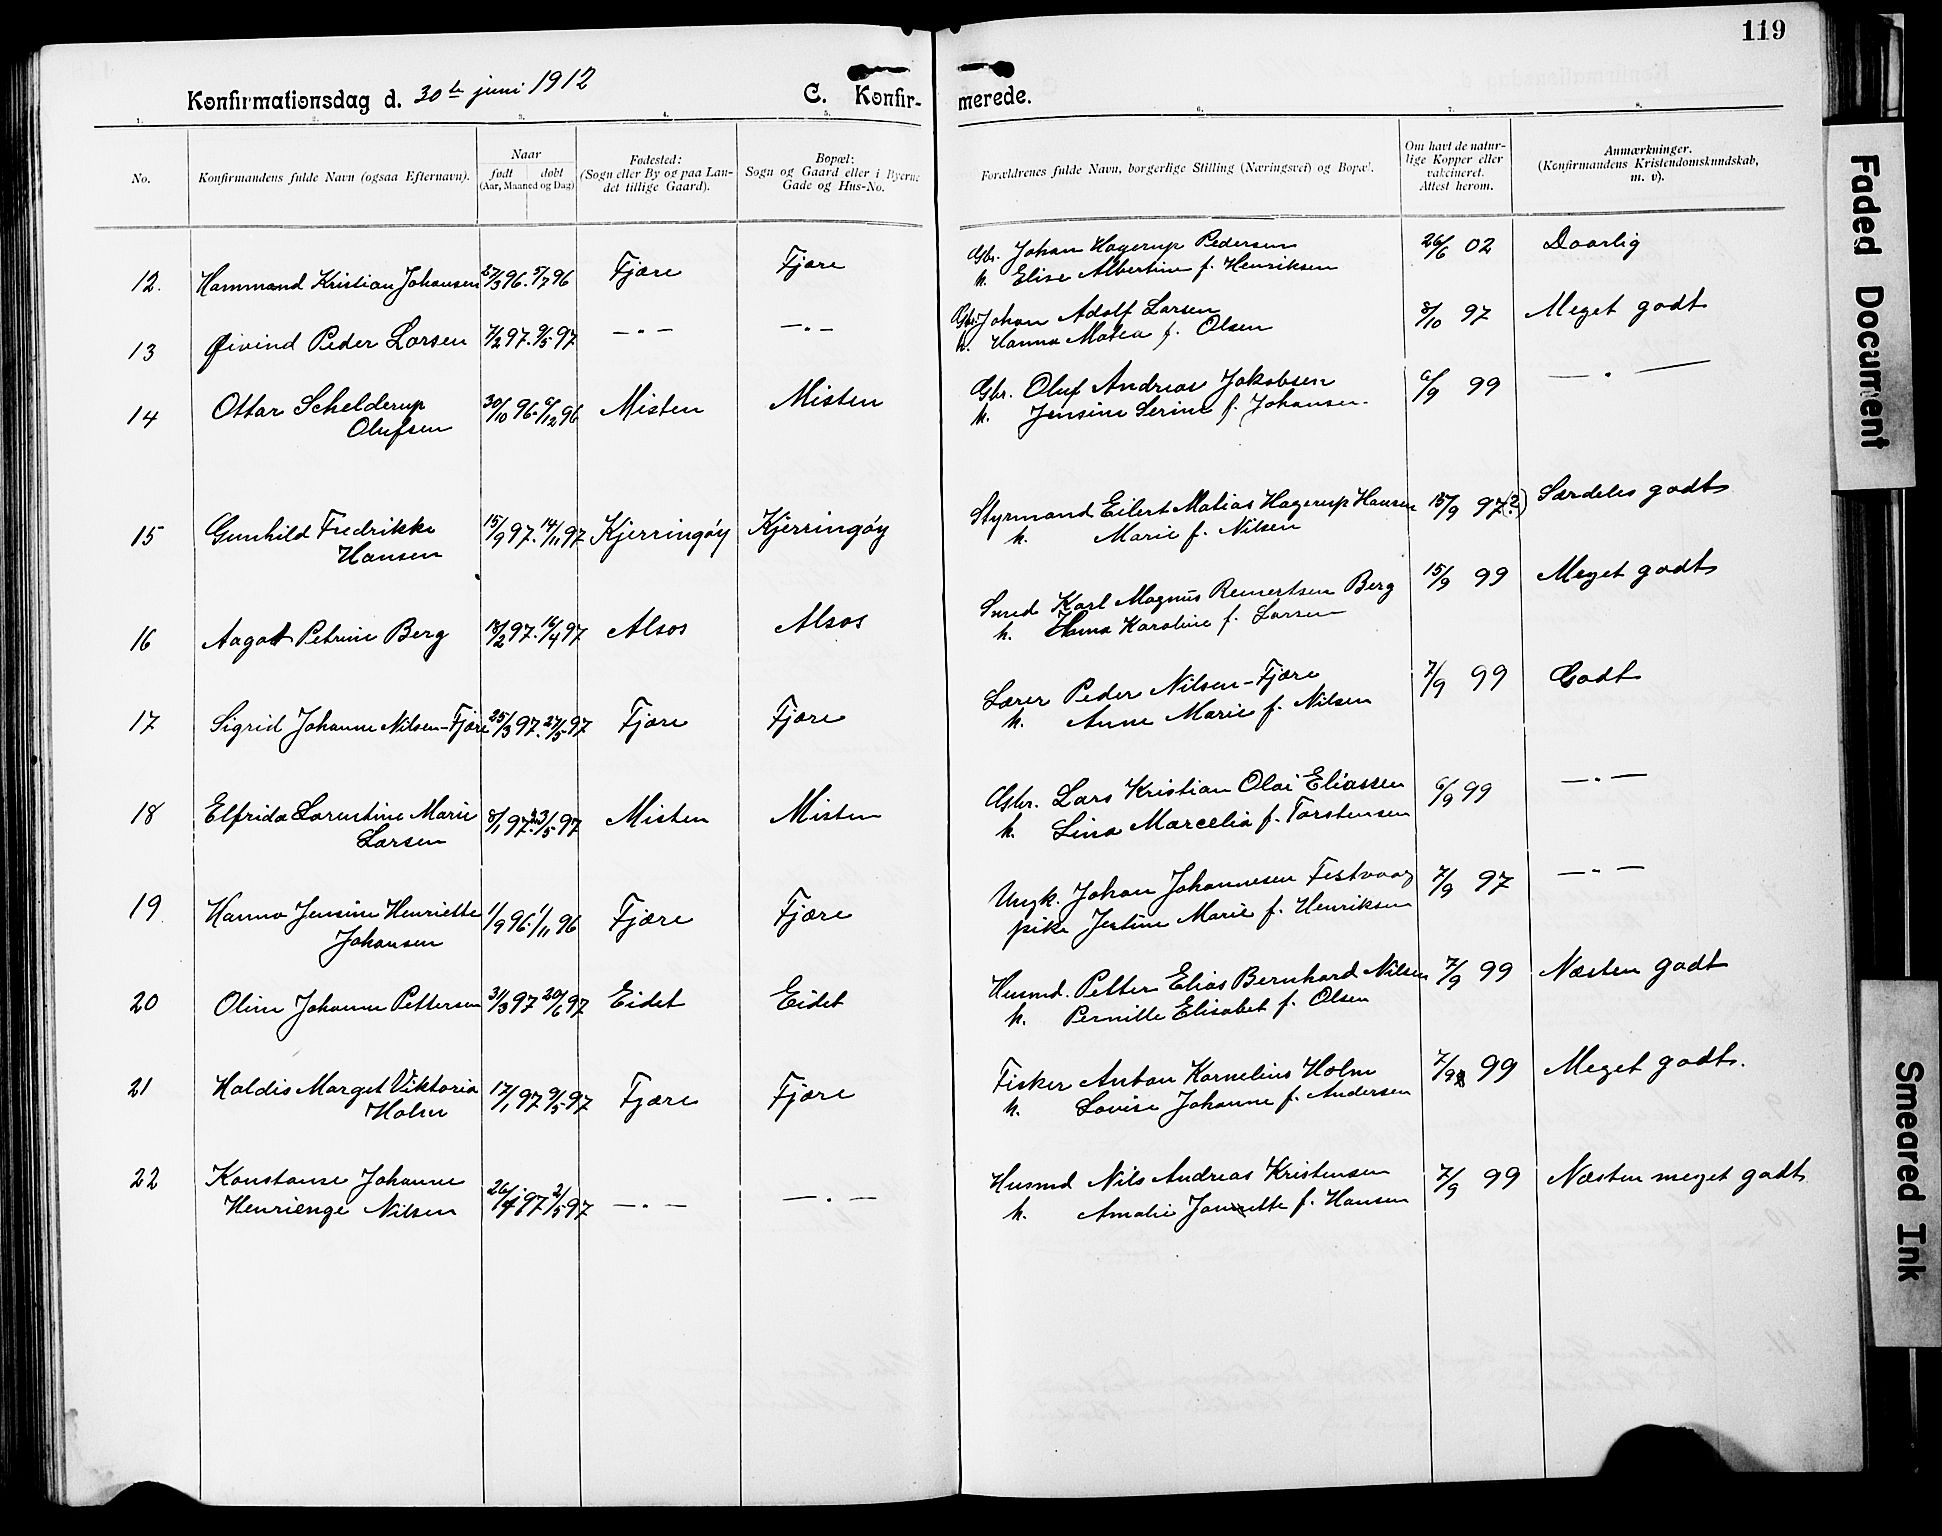 119
Konfirmationsdag d. 30te juni 1912
C. Konfir-
merede.
1. 2. 3. 4. 5. 6. 7. 8.
No.
Konfirmandens fulde Navn (ogsaa Efternavn).
Naar
født døbt
(Aar, Maaned og Dag)
Fødested:
(Sogn eller By og paa Lan-
det tillige Gaard).
Bopæl:
Sogn og Gaard eller i Byerne
Gade og Hus-No.
Forældrenes fulde Navn, borgerlige Stilling (Næringsvei) og Bopæl.
Om havt de natur-
lige Kopper eller
vakcineret.
Attest herom.
Anmærkninger.
(Konfirmandens Kristendomskundskab,
m. v).
12. Hammond Kristian Johansen 27/3 96. 5/7 96 Fjære Fjære
Gbr. Johan Hagerup Pedersen 26/6 02 Daarlig
h. Elise Albertine f. Henriksen
13 Øivind Peder Larsen 7/2 97. 9/5 97 —〃— —〃—
Gbr. Johan Adolf Larsen 8/10 97 Meget godt
h. Hanna Matea f. Olsen
14 Ottar Schelderup 30/10 96. 6/12 96 Misten Misten
Olufsen
Gbr. Oluf Andreas Jakobsen 6/9 99 —〃—
h. Jensine Serine f. Johansen.
15 Gunhild Fredrikke 15/9 97. 14/11 97 Kjerringøy Kjerringøy
Hansen
Styrmand Eilert Matias Hagerup Hansen 15/9 97(?) Særdeles godt
h. Marie f. Nilsen
16 Aagot Petrine Berg 18/2 97. 16/4 97 Alsos Alsos
Smed Karl Magnus Reinertsen Berg 15/9 99 Meget godt
h. Hanna Karoline f. Larsen
17 Sigrid Johanne Nilsen-Fjære 25/3 97. 27/5 97 Fjære Fjære
Lærer Peder Nilsen-Fjære 7/9 99 Godt
h. Anne Marie f. Nilsen
18 Elfrida Lorentine Marie 8/1 97. 23/5 97 Misten Misten
Larsen
Gbr. Lars Kristian Olai Eliassen 6/9 99 —〃—
h. Lina Marcelia f. Torstensen
19 Hanna Jensine Henriette 1/9 96. 1/11 96 Fjære Fjære
Johansen
Ungk. Johan Johannesen Festvaag 7/9 97 —〃—
pike Jentine Marie f. Henriksen
20 Oline Johanne Pettersen 31/3 97 20/6 97 Eidet Eidet
Husmd. Petter Elias Bernhard Nilsen 7/9 99 Næsten godt
h. Pernille Elisabet f. Olsen
21 Haldis Marget Viktoria 17/1 97 9/5 97 Fjære Fjære
Holm
Fisker Anton Kornelius Holm 7/9 99 Meget godt.
h. Lovise Johanne f. Andersen
22 Konstanse Johanne
Henrienge Nilsen 26/4 97 2/5 97 —〃— —〃—
Husmd Nils Andreas Kristensen 7/9 99 Næsten meget godt
h. Amalie Jannette f. Hansen
Faded Document
Smeared Ink